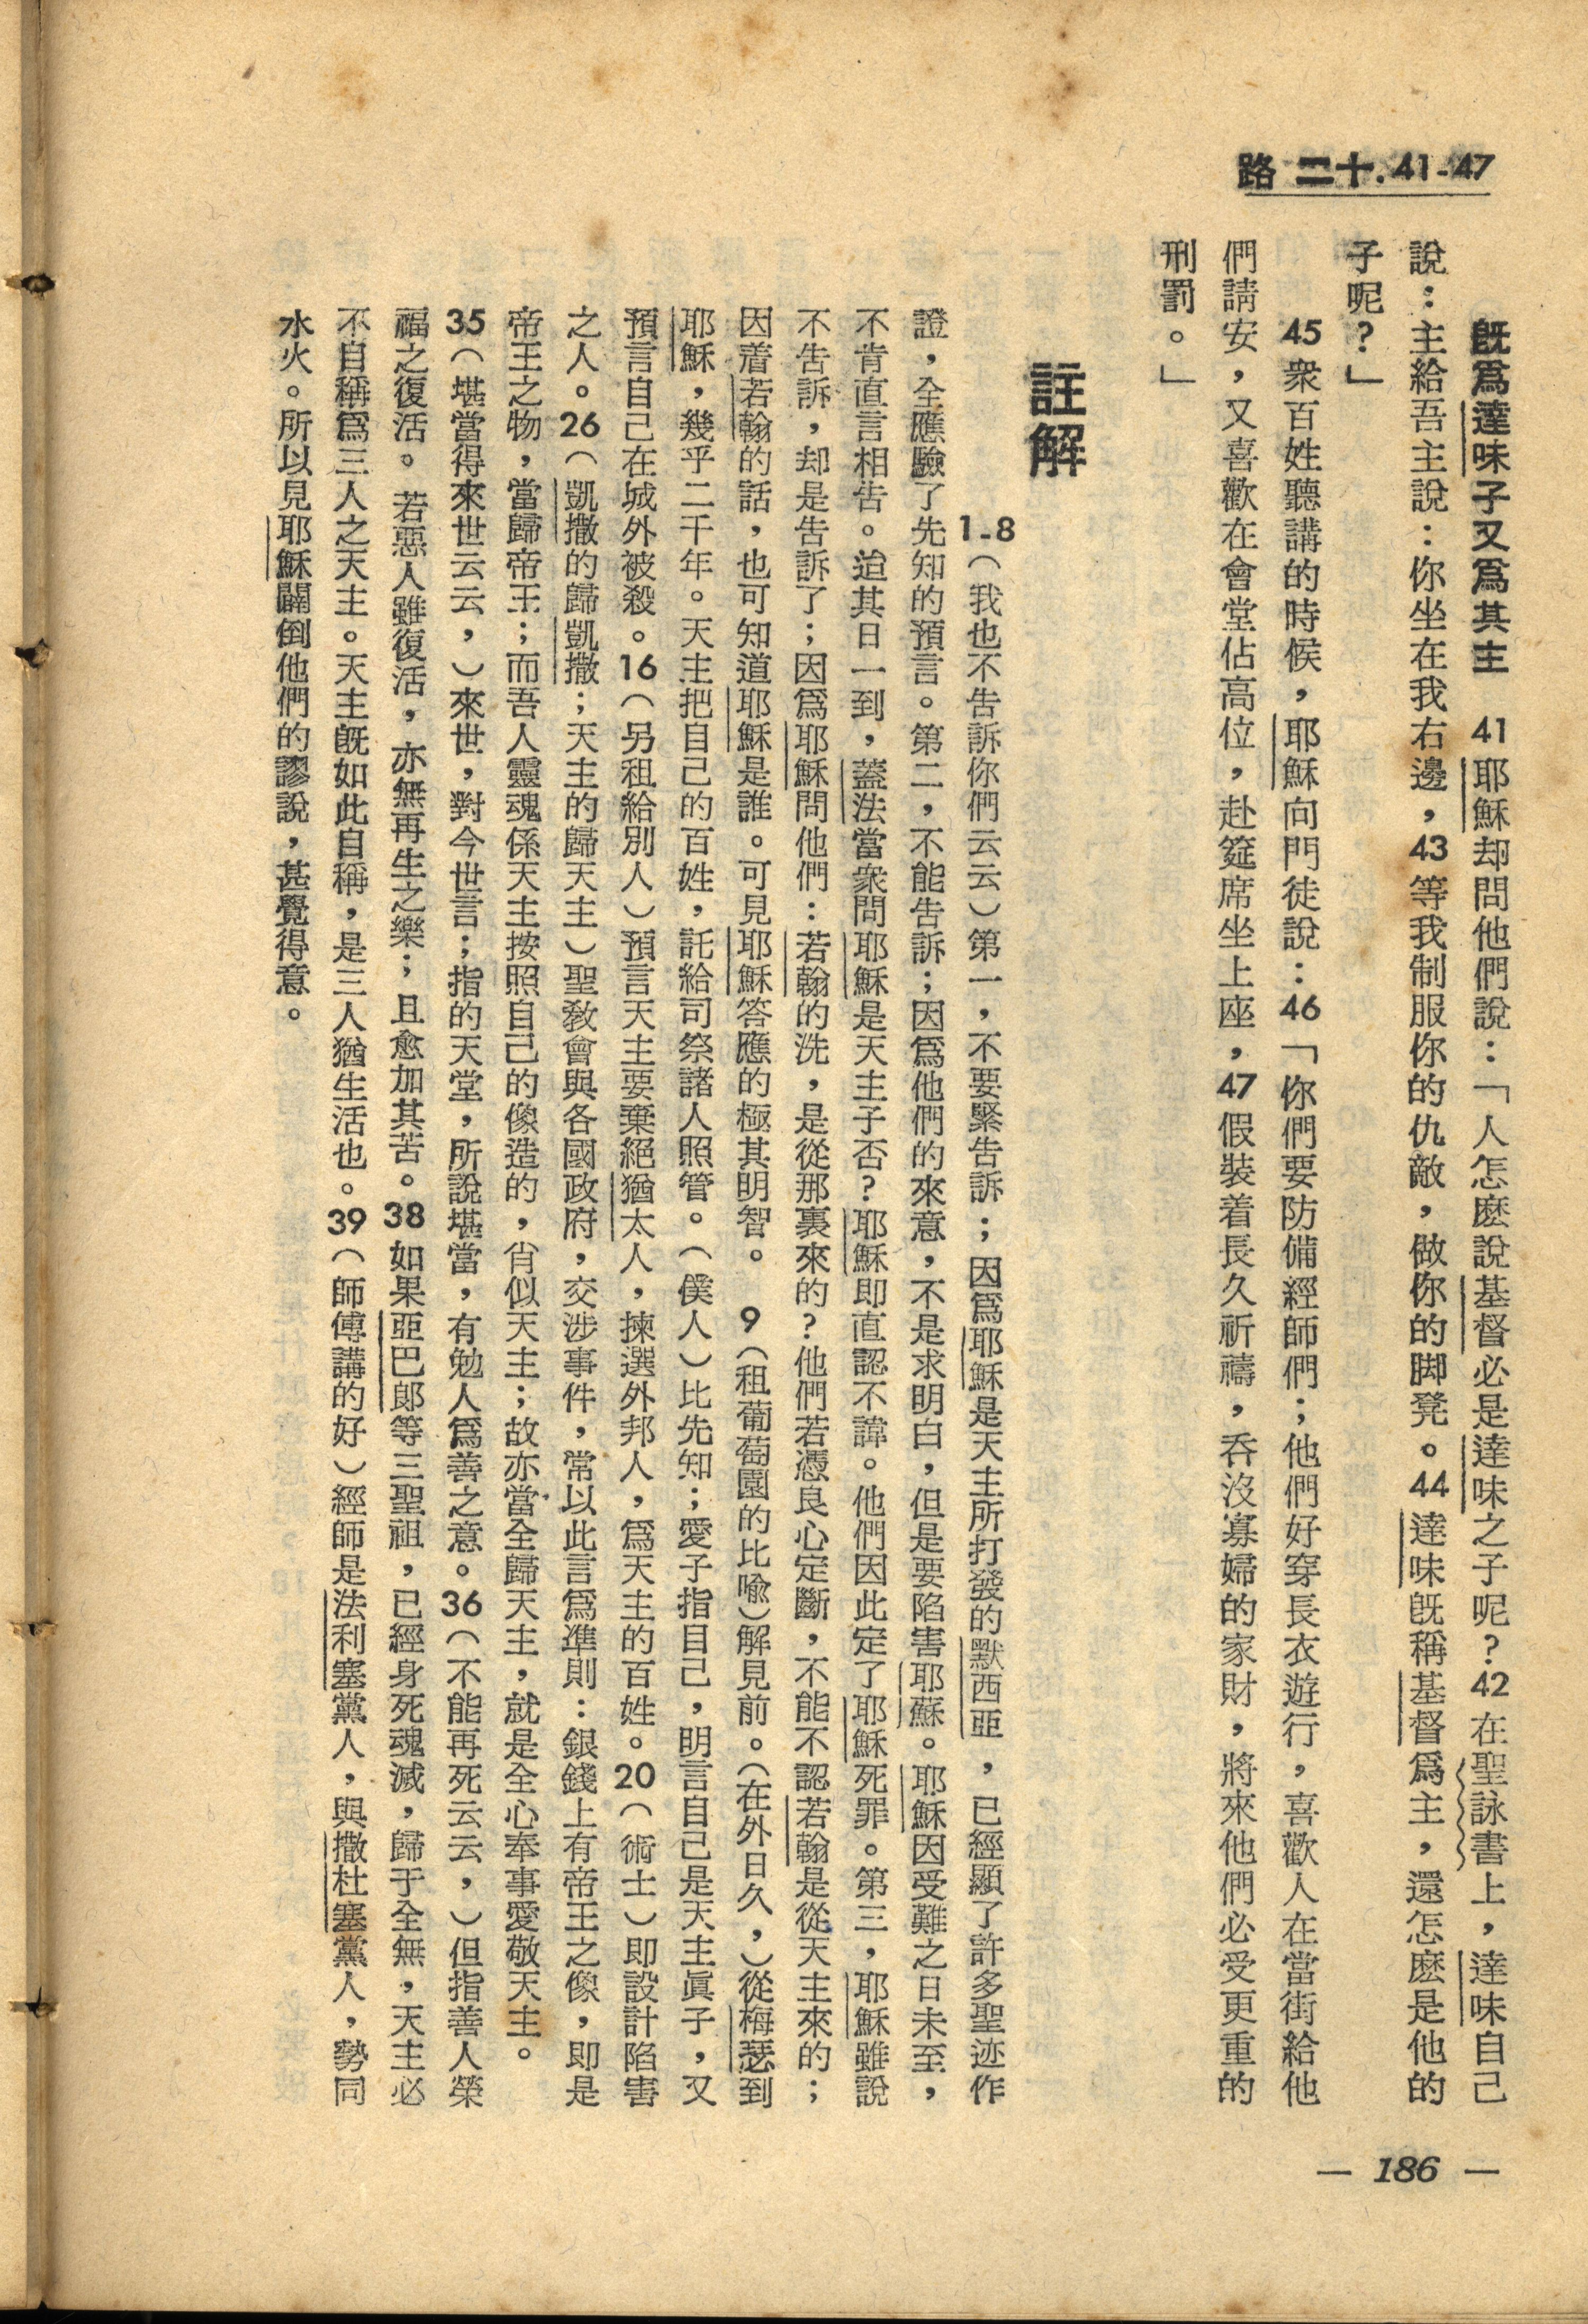 路 二十. 41-47
既爲達味子又爲其主　41耶穌却問他們說：「人怎麽說基督必是達味之子呢？42在聖詠書上，達味自己
說：主給吾主說：你坐在我右邊，43等我制服你的仇敵，做你的脚凳。44達味旣稱基督爲主，還怎麽是他的
子呢？」
45衆百姓聽講的時候，耶穌向門徒說：46「你們要防備經師們；他們好穿長衣遊行，喜歡人在當街給他
們請安，又喜歡在會堂佔高位，赴筵席坐上座，47假裝着長久祈禱，吞沒寡婦的家財，將來他們必受更重的
刑罰。」
註解
1-8（我也不告訴你們云云）第一，不要緊告訴；因爲耶穌是天主所打發的默西亞，已經顯了許多聖迹作
證，全應驗了先知的預言。第二，不能告訴；因爲他們的來意，不是求明白，但是要陷害耶蘇。耶穌因受難之日未至，
不肯直言相告。迨其日一到，蓋法當衆問耶穌是天主子否？耶穌即直認不諱。他們因此定了耶穌死罪。第三，耶穌雖說
不告訴，却是告訴了；因爲耶穌問他們：若翰的洗，是從那裏來的？他們若憑良心定斷，不能不認若翰是從天主來的；
因着若翰的話，也可知道耶穌是誰。可見耶穌答應的極其明智。　9（租葡萄園的比喩）解見前。（在外日久，）從梅瑟到
耶穌，幾乎二千年。天主把自己的百姓，託給司祭諸人照管。（僕人）比先知；愛子指自己，明言自己是天主眞子，又
預言自己在城外被殺。16（另租給別人）預言天主要棄絕猶太人，揀選外邦人，爲天主的百姓。20（術士）即設計陷害
之人。26（凱撒的歸凱撒；天主的歸天主）聖敎會與各國政府，交涉事件，常以此言爲準則：銀錢上有帝王之像，即是
帝王之物，當歸帝王；而吾人靈魂係天主按照自己的像造的，肖似天主；故亦當全歸天主，就是全心奉事愛敬天主。
35（堪當得來世云云，）來世，對今世言；指的天堂，所說堪當，有勉人爲善之意。36（不能再死云云，）但指善人榮
福之復活。若惡人雖復活，亦無再生之樂；且愈加其苦。38如果亞巴郎等三聖祖，已經身死魂滅，歸于全無，天主必
不自稱爲三人之天主。天主旣如此自稱，是三人猶生活也。39（師傅講的好）經師是法利塞黨人，與撒杜塞黨人，勢同
水火。所以見耶穌闢倒他們的謬說，甚覺得意。
— 186 —